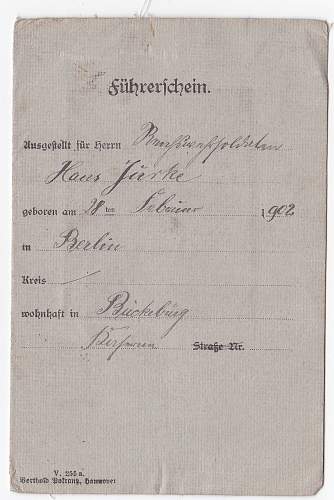 Führerschein.
Ausgestellt für Herrn Reichswehrsoldaten
Hans Jürke
geboren am 28 ten Februar 1902
in Berlin
Kreis /
wohnhaft in Bückeburg
Straße Nr.
V. 255 a.
Berthold Pokrantz, Hannover